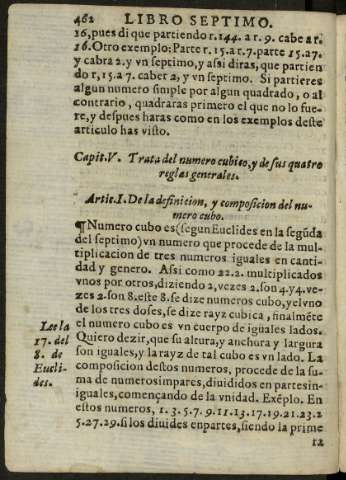 462 LIBRO SEPTIMO.
16, pues di que partiendo r.144. a r.9. cabe a r.
16. Otro exemplo: Parte r.15. a r.7. parte 15. a 7.
y cabra 2. y vn septimo, y assi diras, que partien
do r, 15. a 7. caber 2, y vn septimo. Si partieres
algun numero simple por algun quadrado, o al
contrario, quadraras primero el que no lo fue-
re, y despues haras como en los exemplos deste
articulo has visto.
Capit. V. Trata del numero cubico, y de sus quatro
reglas generales.
Artic. I. De la definicion, y composicion del nu-
mero cubo.
¶Numero cubo es (segun Euclides en la segũda
del septimo) vn numero que procede de la mul-
tiplicacion de tres numeros iguales en canti-
dad y genero. Assi como 2 2. 2. multiplicados
vnos por otros, diziendo 2, vezes 2. son 4. y 4. ve-
zes 2. son 8. este 8. se dize numeros cubo, y el vno
de los tres doses, se dize rayz cubica, finalmẽte
el numero cubo es vn cuerpo de iguales lados.
Quiero dezir, que su altura, y anchura y largura
son iguales, y la rayz de tal cubo es vn lado. La
composicion destos numeros, procede de la su-
ma de numeros impares, diuididos en partes in-
iguales, començando de la vnidad. Exẽplo. En
estos numeros, 1. 3. 5. 7. 9. 11. 13. 17. 19. 21. 23. 2
5. 27. 29. si los diuides en partes, siendo la prime
12
Lee la
17. del
8. de
Eucli-
des.